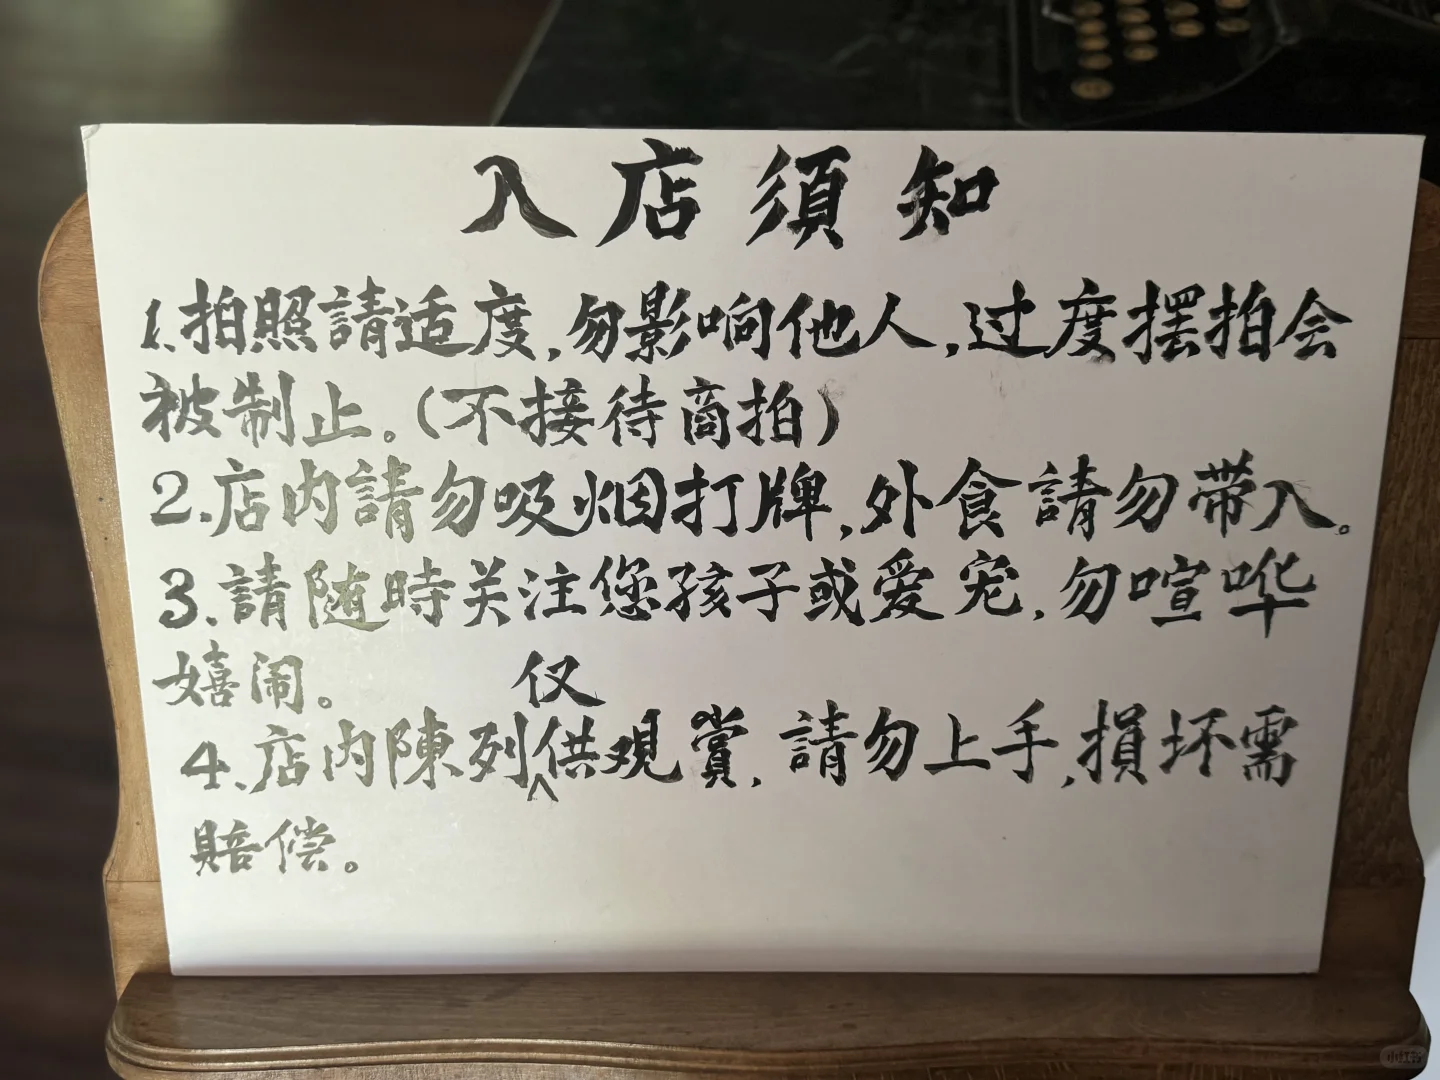 入店須知
1.拍照請适度,勿影响他人,过度摆拍会
被制止。(不接待商拍)
2.店内請勿吸烟打牌,外食請勿带入。
3.請随時关注您孩子或爱宠,勿喧哗
嬉闹。
4.店内陳列仅供观賞,請勿上手,損坏需
賠偿。
小红书